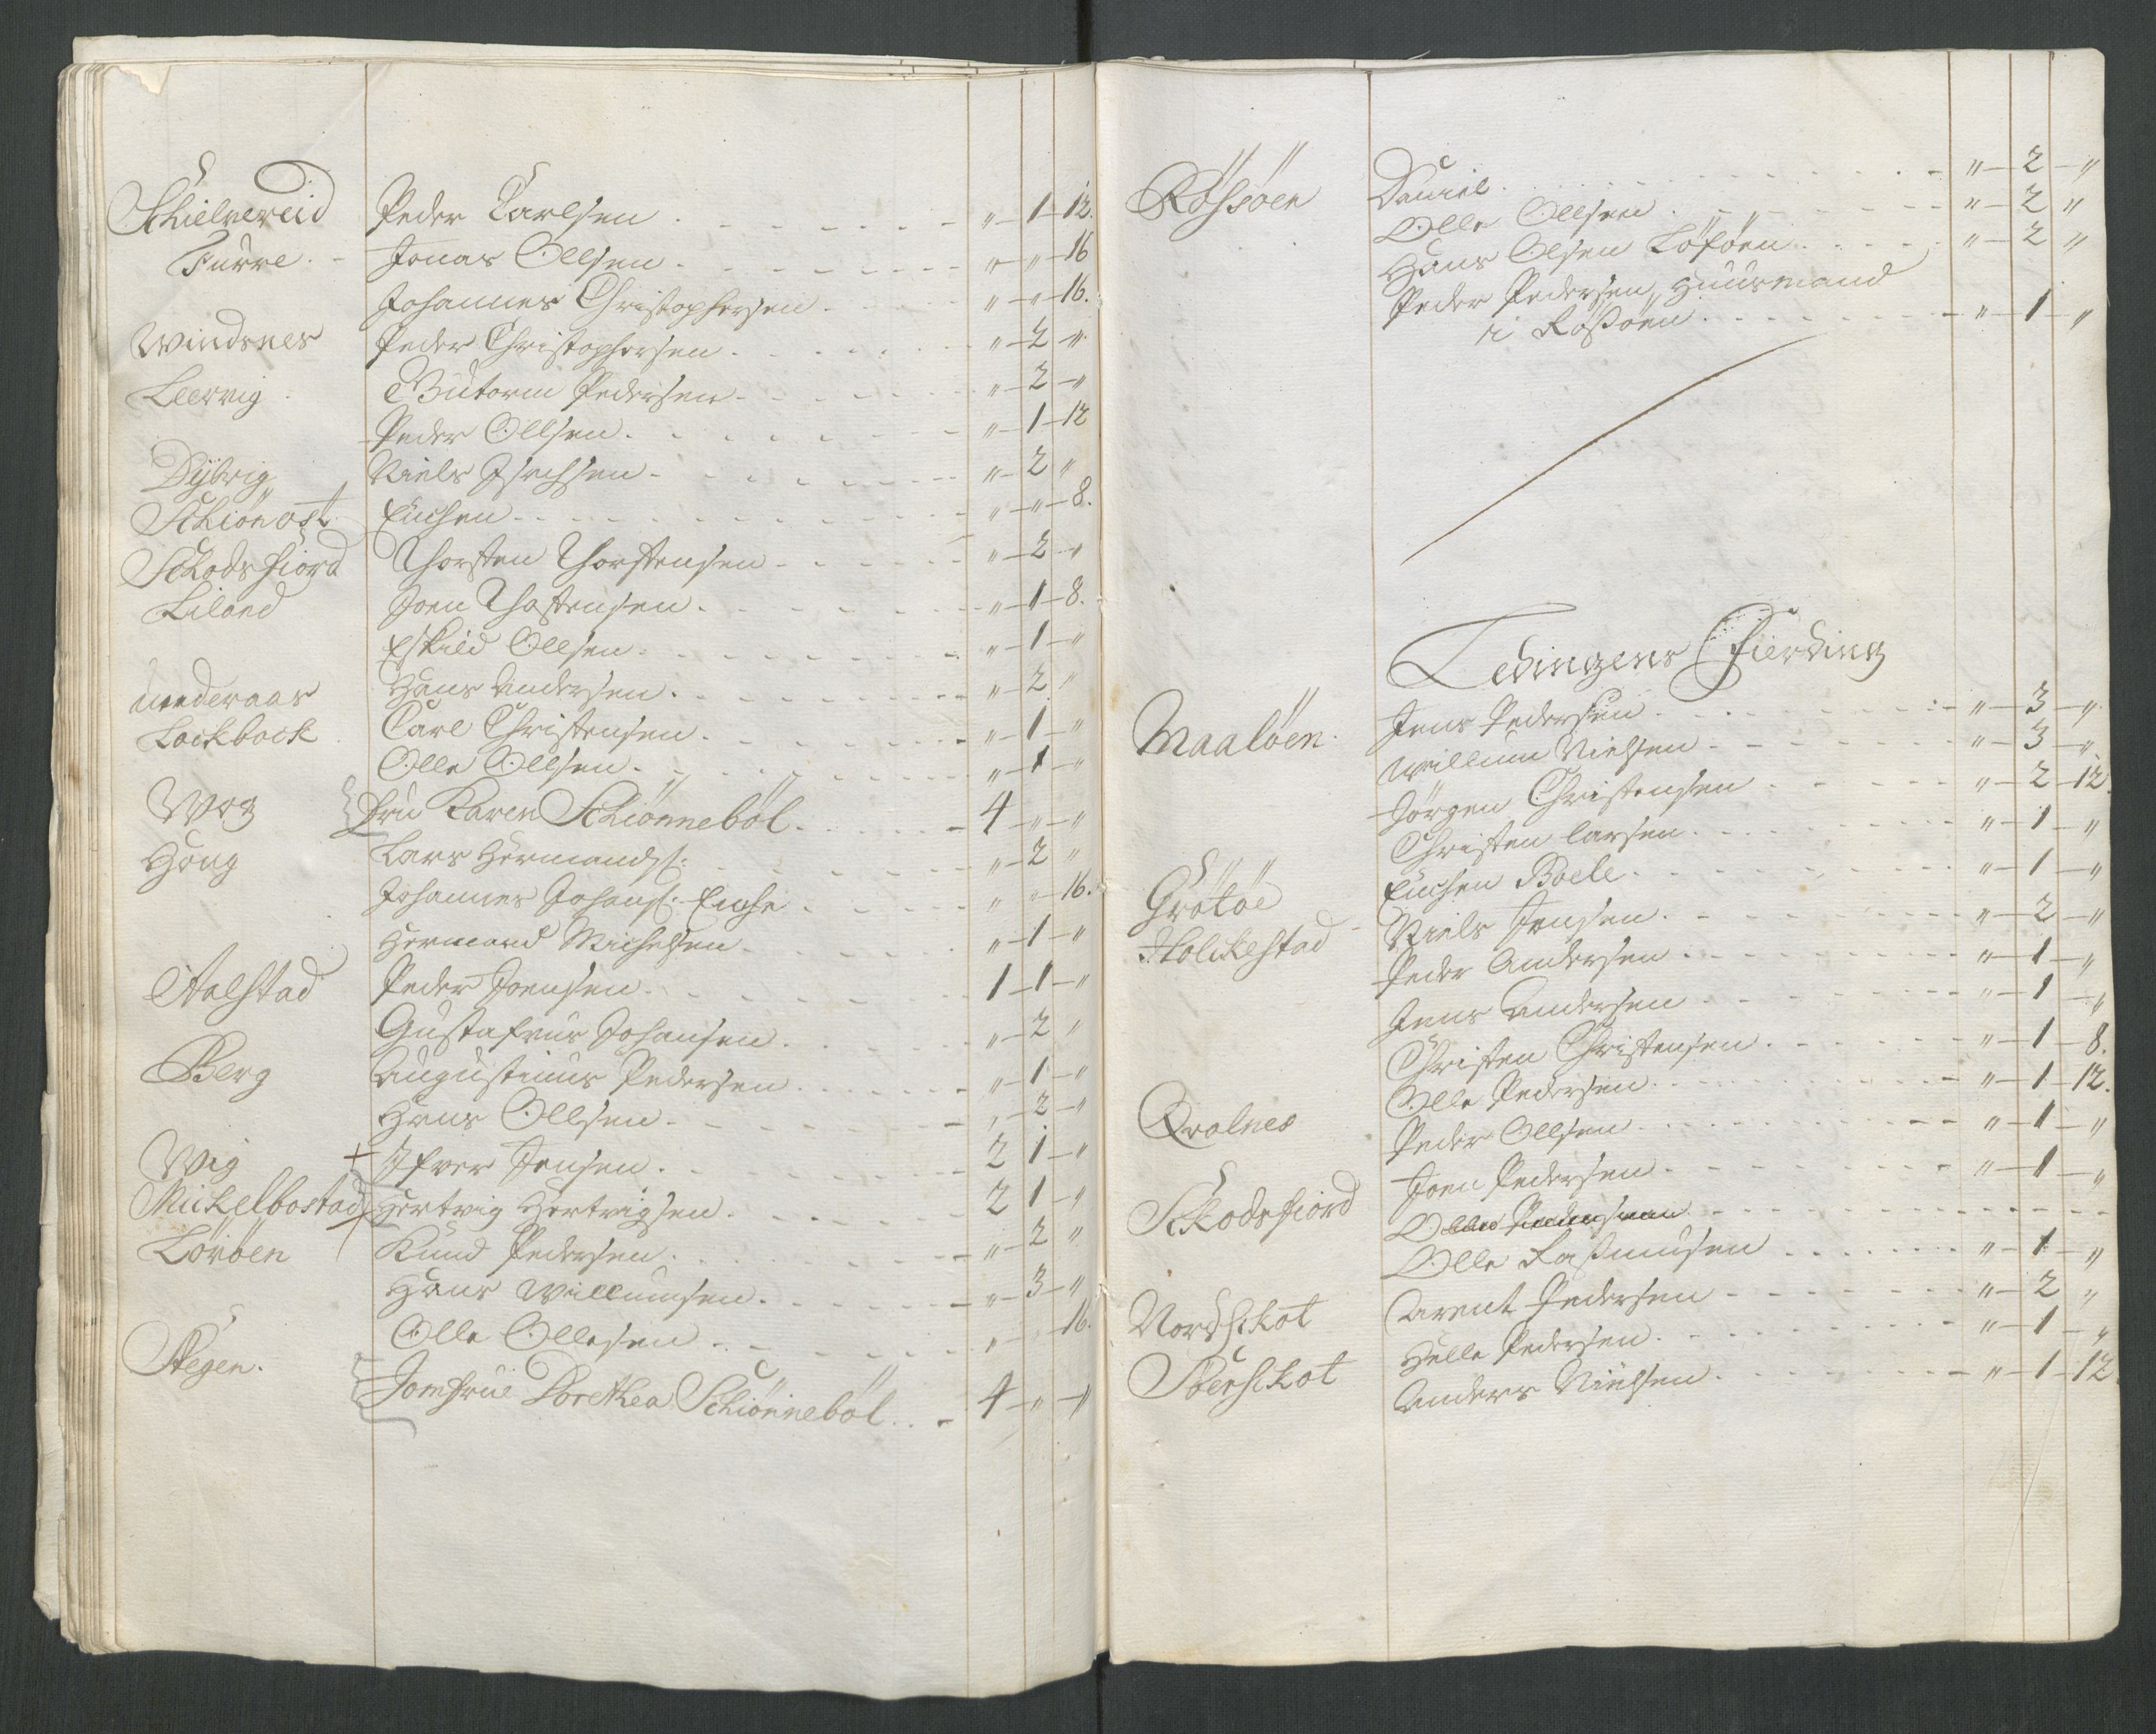 Schielvereid Peder Carlsen . „ – 1 – 12.
Furre. Jonas Ollsen . „ „ – 16
Johannes Christophersen . „ – „ – 16.
Windsnes Peder Christophersen . „ – 2 – „
Leervig Gutorm Pedersen . „ – 2 – „
Peder Ollsen . „ – 1 – 12
Dybvig Niels – „ – 2 „
Schiönøst Enchen – „ – „ – 8.
Schodsfiord Thorsten Thorstensen – „ – 2 – „
Liland Joen Thostensen . „ – 1 – 8.
Eskild Ollsen . „ – 1 – „
Nederaas Hans Andersen . „ – 2 „
Lockbock Carl Christensen . „ – 1 – „
Olle Ollsen . „ – 1 – „
Wog Fru Karen Schiønnebøl . 4 – „ – „
Houg Lars Hermands: „ – 2 „
Johannes Johans: Enche . „ „ 16.
Hermand Michelsen . „ – 1 – „
Aalstad Peder Joensen . 1 – 1 – „
Gustafvus Johansen . „ – 2 „
Berg Augustinus Pedersen . „ – 1 – „
Hans Ollsen . „ – 2 – „
Wig + Ifver Jensen . 2 1 – „
Mickelbostad + Hertvig Hertvigsen . 2 1 – „
Lövöen Knud Pedersen . „ – 2 „
Hans Willumsen . „ – 3 – „
Olle Ollesen . „ „ 16.
Stegen. Jomfrue Dorethea Schiønnebøl . . 4 – „ – „
Røssøen Daniel . „ – 2 – „
Olle Ollsen . „ – 2 „
Hans Olsen Löføen . „ – 2 „
Peder Pedersen, Huusmand
i Røssøen . „ – 1 – „
Ledingens Fierding
Maaløen. Jens Pedersen . „ – 3 – „
Willum Nielsen . „ – 3 – „
Jörgen Christensen . „ – 2 – 12.
Christen Larsen . „ – 1 – „
Grøtøe Enchen Boele . „ – 1 – „
Holckestad Niels Jensen . „ – 2 – „
Peder Andersen . „ – 1 – „
Jens Andersen . „ – 1 – „
Christen Christensen . „ – 1 – 8.
Olle Pedersen . „ – 1 – 12.
Qvalnes Peder Ollsen . „ – 1 – „
Joen Pedersen . „ – 1 – „
Skodsfiord Olle
Olle Rasmussen . „ – 1 – „
Nordschot Arent Pedersen . „ – 2 „
Helle Pedersen . „ – 1 – „
Sörschot Anders Nielsen . „ – 1 – 12